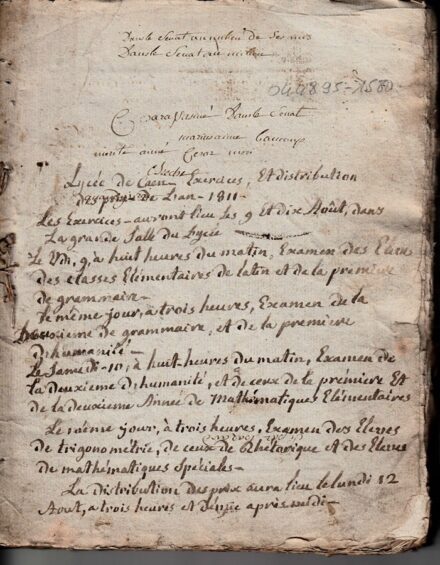 Dans le Senat au milieu de ses
Dans le Senat au milieu
044895-1580
Cesar a Dans le Senat
marius aime
aime Cesar
Lycée de Caen Exercices, Et distribution
des prix de L'an-1811-
Les Exercices auront lieu Les 9 et dix Août, dans
La grande Salle du Lycée
Le Vdi, 9, à huit heures du matin, Examen des Eleves
des classes Elémentaires de latin et de la premiere
de grammaire-
le même jour, à trois heures, Examen de la
deuxieme de grammaire, et de la premiere
d'humanité-
Le Samedi-10, à huit-heures du matin, Examen de
la deuxieme d'humanité, et de ceux de la première Et
de la deuxieme Année de Mathématiques Elémentaires
Le même jour, à trois heures, Examen des Eleves
de trigonométrie, de ceux de Rhétorique et des Eleves
de mathématiques Spéciales-
La distribution des prix aura lieu le lundi 12
Aout, a trois heures et Demie après midi-